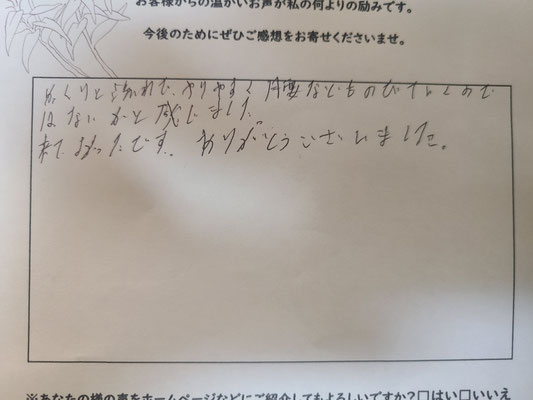 お客様からの温かいお声が私の何よりの励みです。
今後のためにぜひご感想をお寄せくださいませ。
やりやすく
はないかと感じました。
来てよかったです。ありがとうございました。
※あなたの様の声をホームページなどにご紹介してもよろしいですか?□はい□いいえ